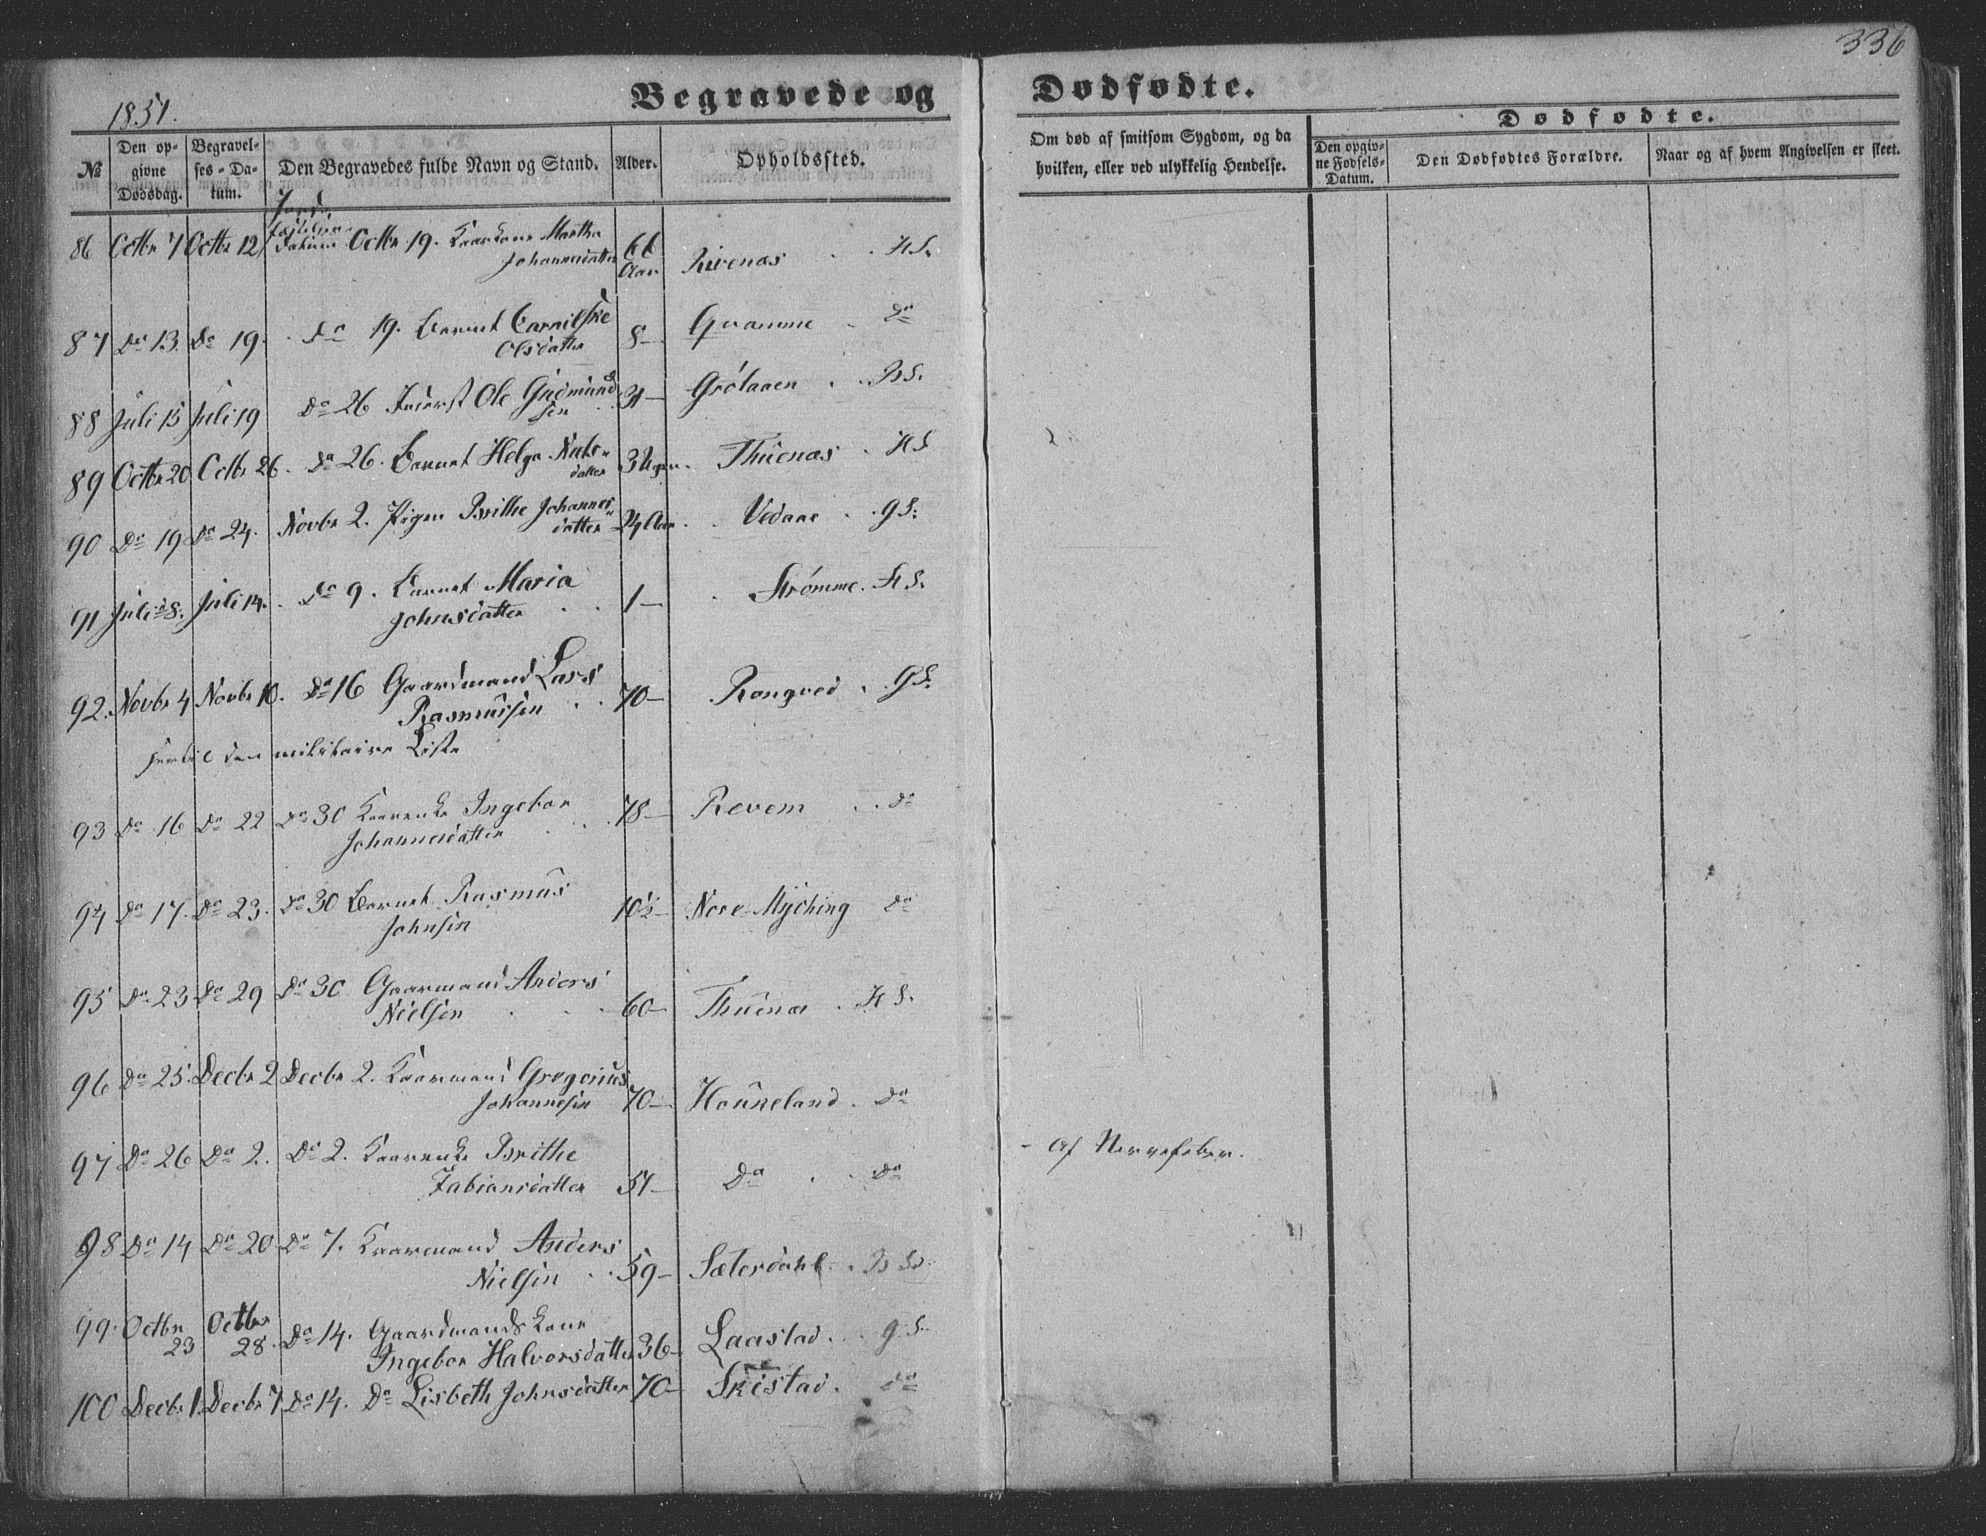 336
1851.
Begravede og Dødfødte.
Dødfødte.
No
Den op-
givne
Dødsdag.
Begravel-
ses-Da-
tum.
Den Begravedes fulde Navn og Stand.
Alder.
Opholdssted.
Om død af smitsom Sygdom, og da
hvilken, eller ved ulykkelig Hendelse.
Den opgiv-
ne Fødsels-
Datum.
Den Dødfødtes Forældre.
Naar og af hvem Angivelsen er skeet.
Jord
86 Octbr 7 Octbr 12 Octbr 19. Kaarkone Martha 66 Rivenæs H S.
Johannesdatter Aar
87 Do 13. Do 19. Do 19. Barnet Carnilske 8 — Qvamme Do
Olsdatter
88 Juli 15 Juli 19 Do 26 Inderst Ole Gudmund 31 — Grolaaen B S.
sen
89 Octbr 20 Octbr 26. Do 26. Barnet Helga Nuts- 3 Uger. Thuenæs H S
datter
90 Do 19 Do 24. Novbr 2. Pigen Brithe Johannes- 24 Aar Vedaae G S.
datter
91 Juli 8. Juli 14. Do 9. Barnet Maria 1 — Strømme H S.
Johnsdatter
92. Novbr 4 Novbr 10. Do 16 Gaardmand Lars 70 — Rongved G S.
Rasmussen
den militaire Liste
93 Do 16 Do 22 Do 30 Kaarenke Ingebor 78 — Revem Do
Johannesdatter
94 Do 17. Do 23. Do 30 Barnet Rasmus 10½ — Nore Myching Do
Johnsen
95 Do 23 Do 29 Do 30 Gaarmand Anders 60 — Thuenæs H S.
Nielsen
96 Do 25. Decbr 2 Decbr 2. Kaarmand Gregorius 70 — Houneland Do
Johannesen
97 Do 26 Do 2. Do 2. Kaarenke Brithe - Af Nervefeber.
Fabiansdatter 51 — Do Do
98 Do 14 Do 20 Do 7. Kaarmand Anders
Nielsen 59 — Sæterdahl B S.
99. Octbr 23 Octbr 28. Do 14. Gaardmands Kone
Ingebor Halvorsdatter 36 — Laastad G S.
100 Decbr 1. Decbr 7 Do 14. Do Lisbeth Johnsdatter 70 — Skistad. Do